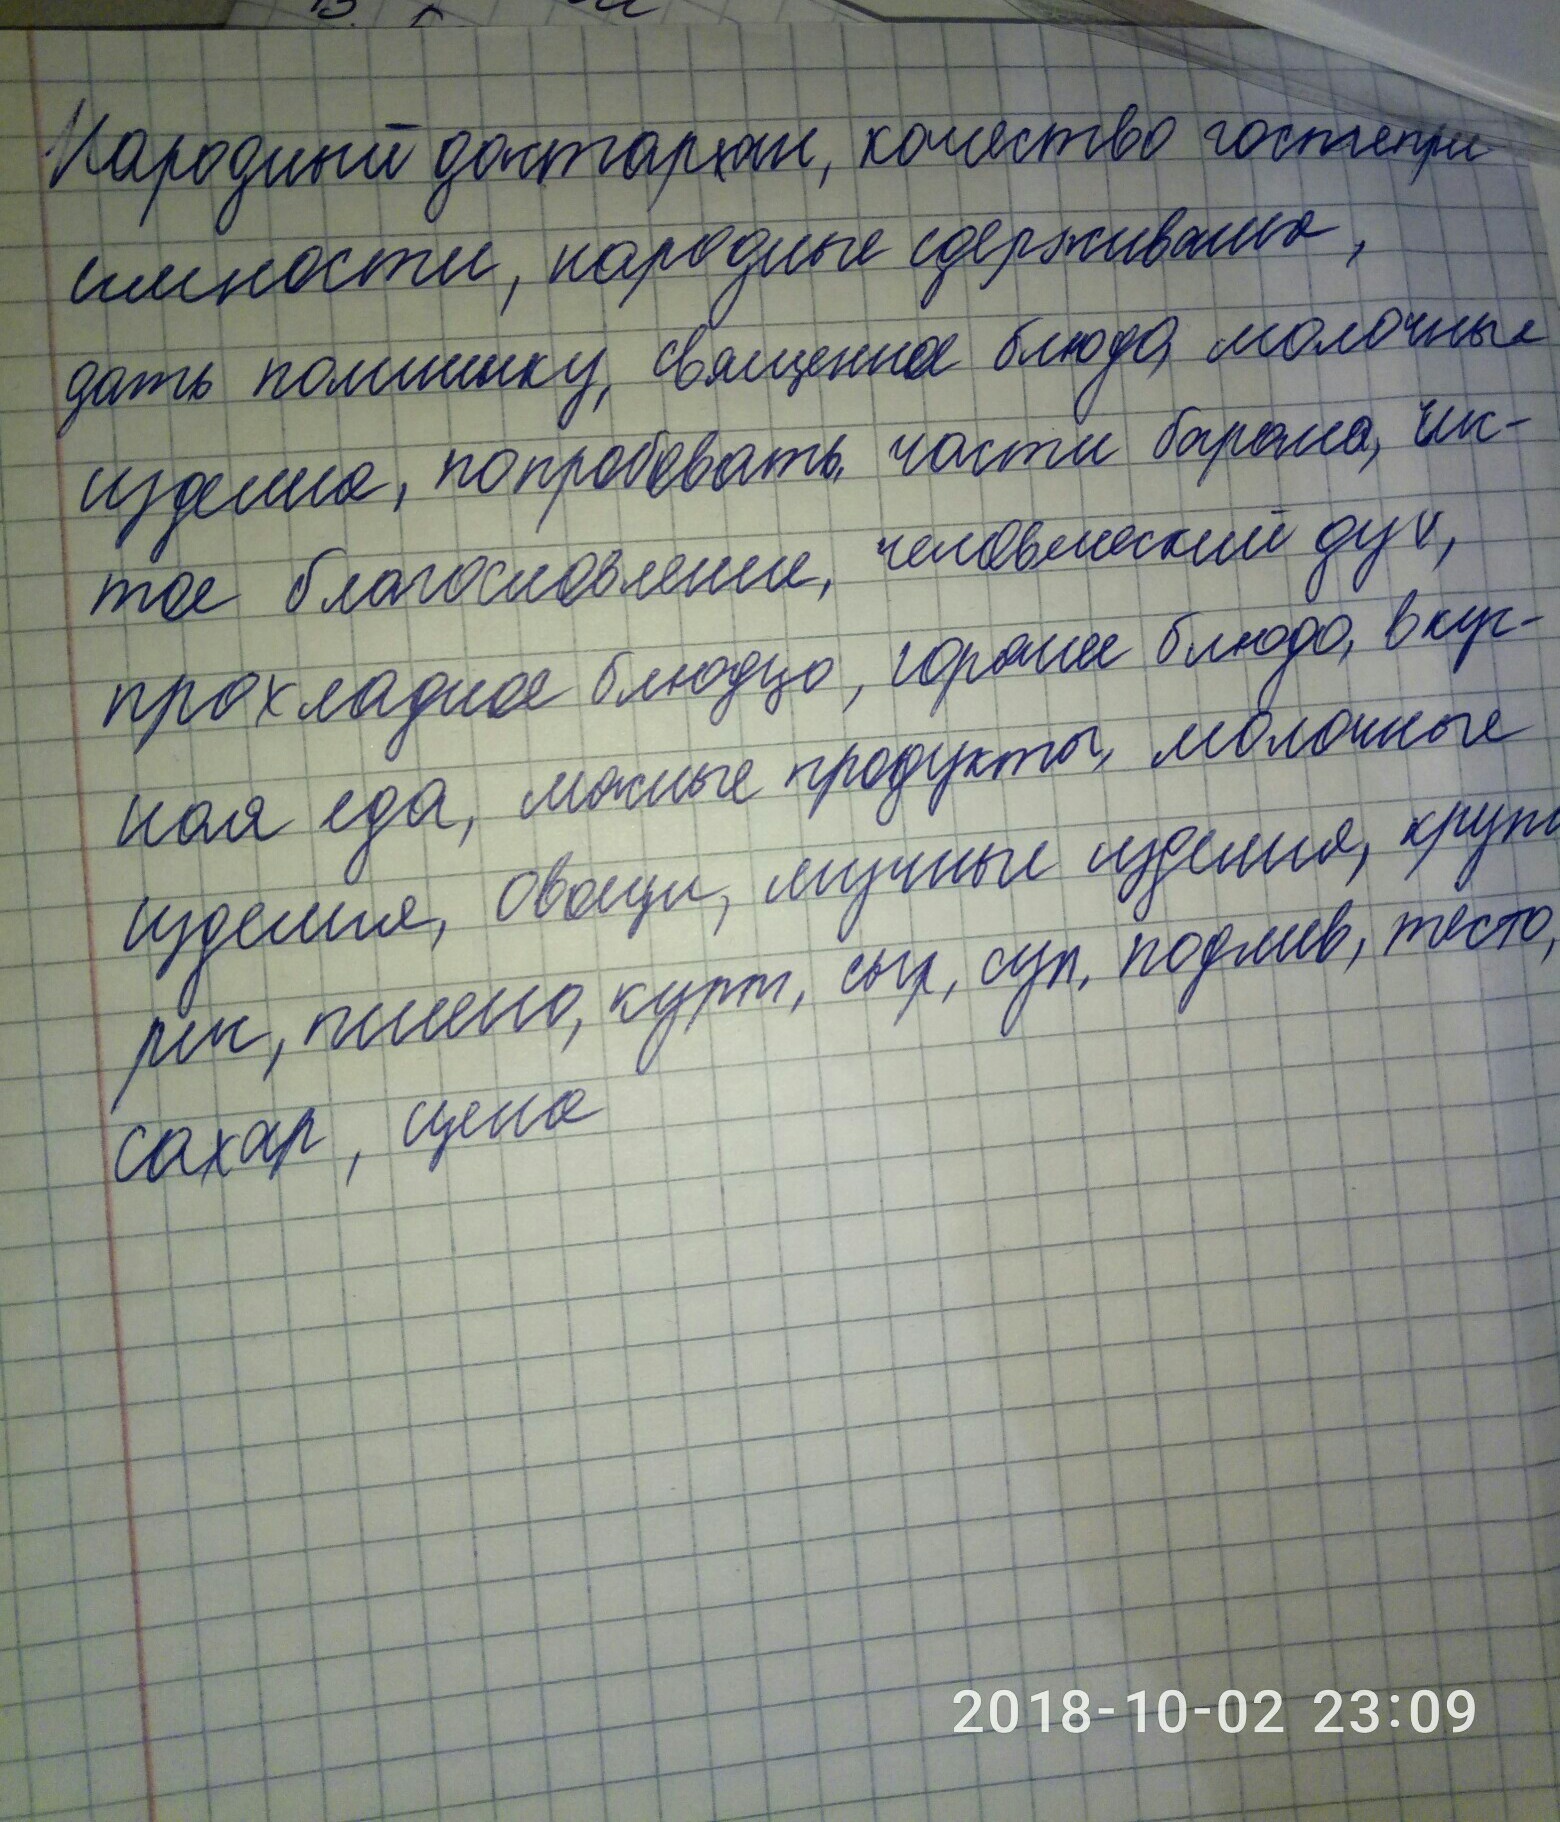 Народный дастархан, качество гостепри
имности, народные сдерживание,
дать помишку, священное блюдо, молочные
изделие, попробовать части барана, чис-
тое благословление, человеческий дух,
прохладное блюдцо, горячее блюдо, вкус-
ная еда, мясные продукты, молочные
изделия, овощи, мучные изделия, крупа
рис, пшено, курт, сыр, суп, подлив, тесто,
сахар, цена
2018-10-02 23:09